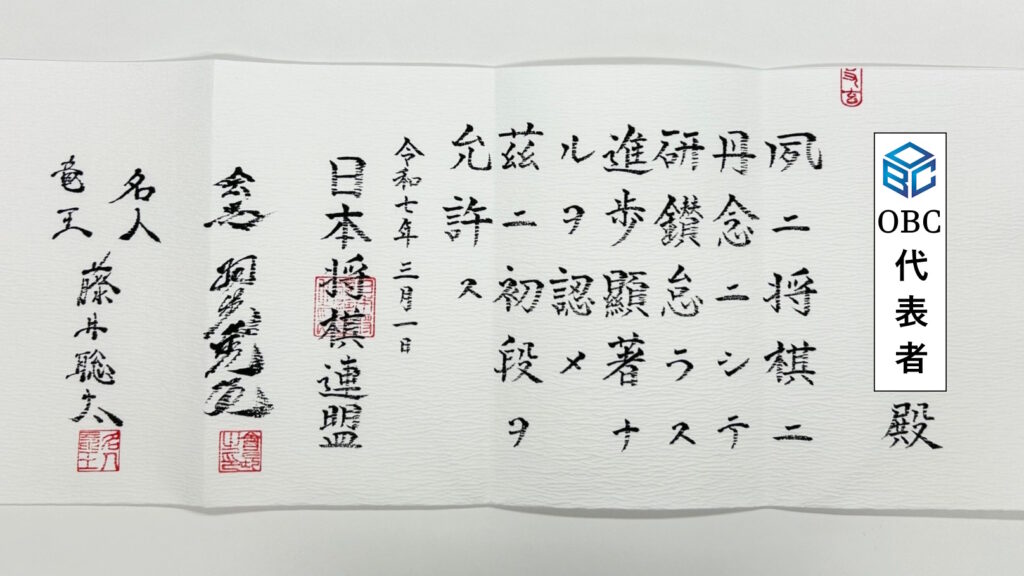 OBC
代表者
殿
夙ニ将棋ニ
丹念ニシテ
研鑚怠ラス
進歩顯著ナ
ルヲ認メ
茲ニ初段ヲ
允許ス
令和七年三月一日
日本将棋連盟
会長
名人
竜王
藤井聡太